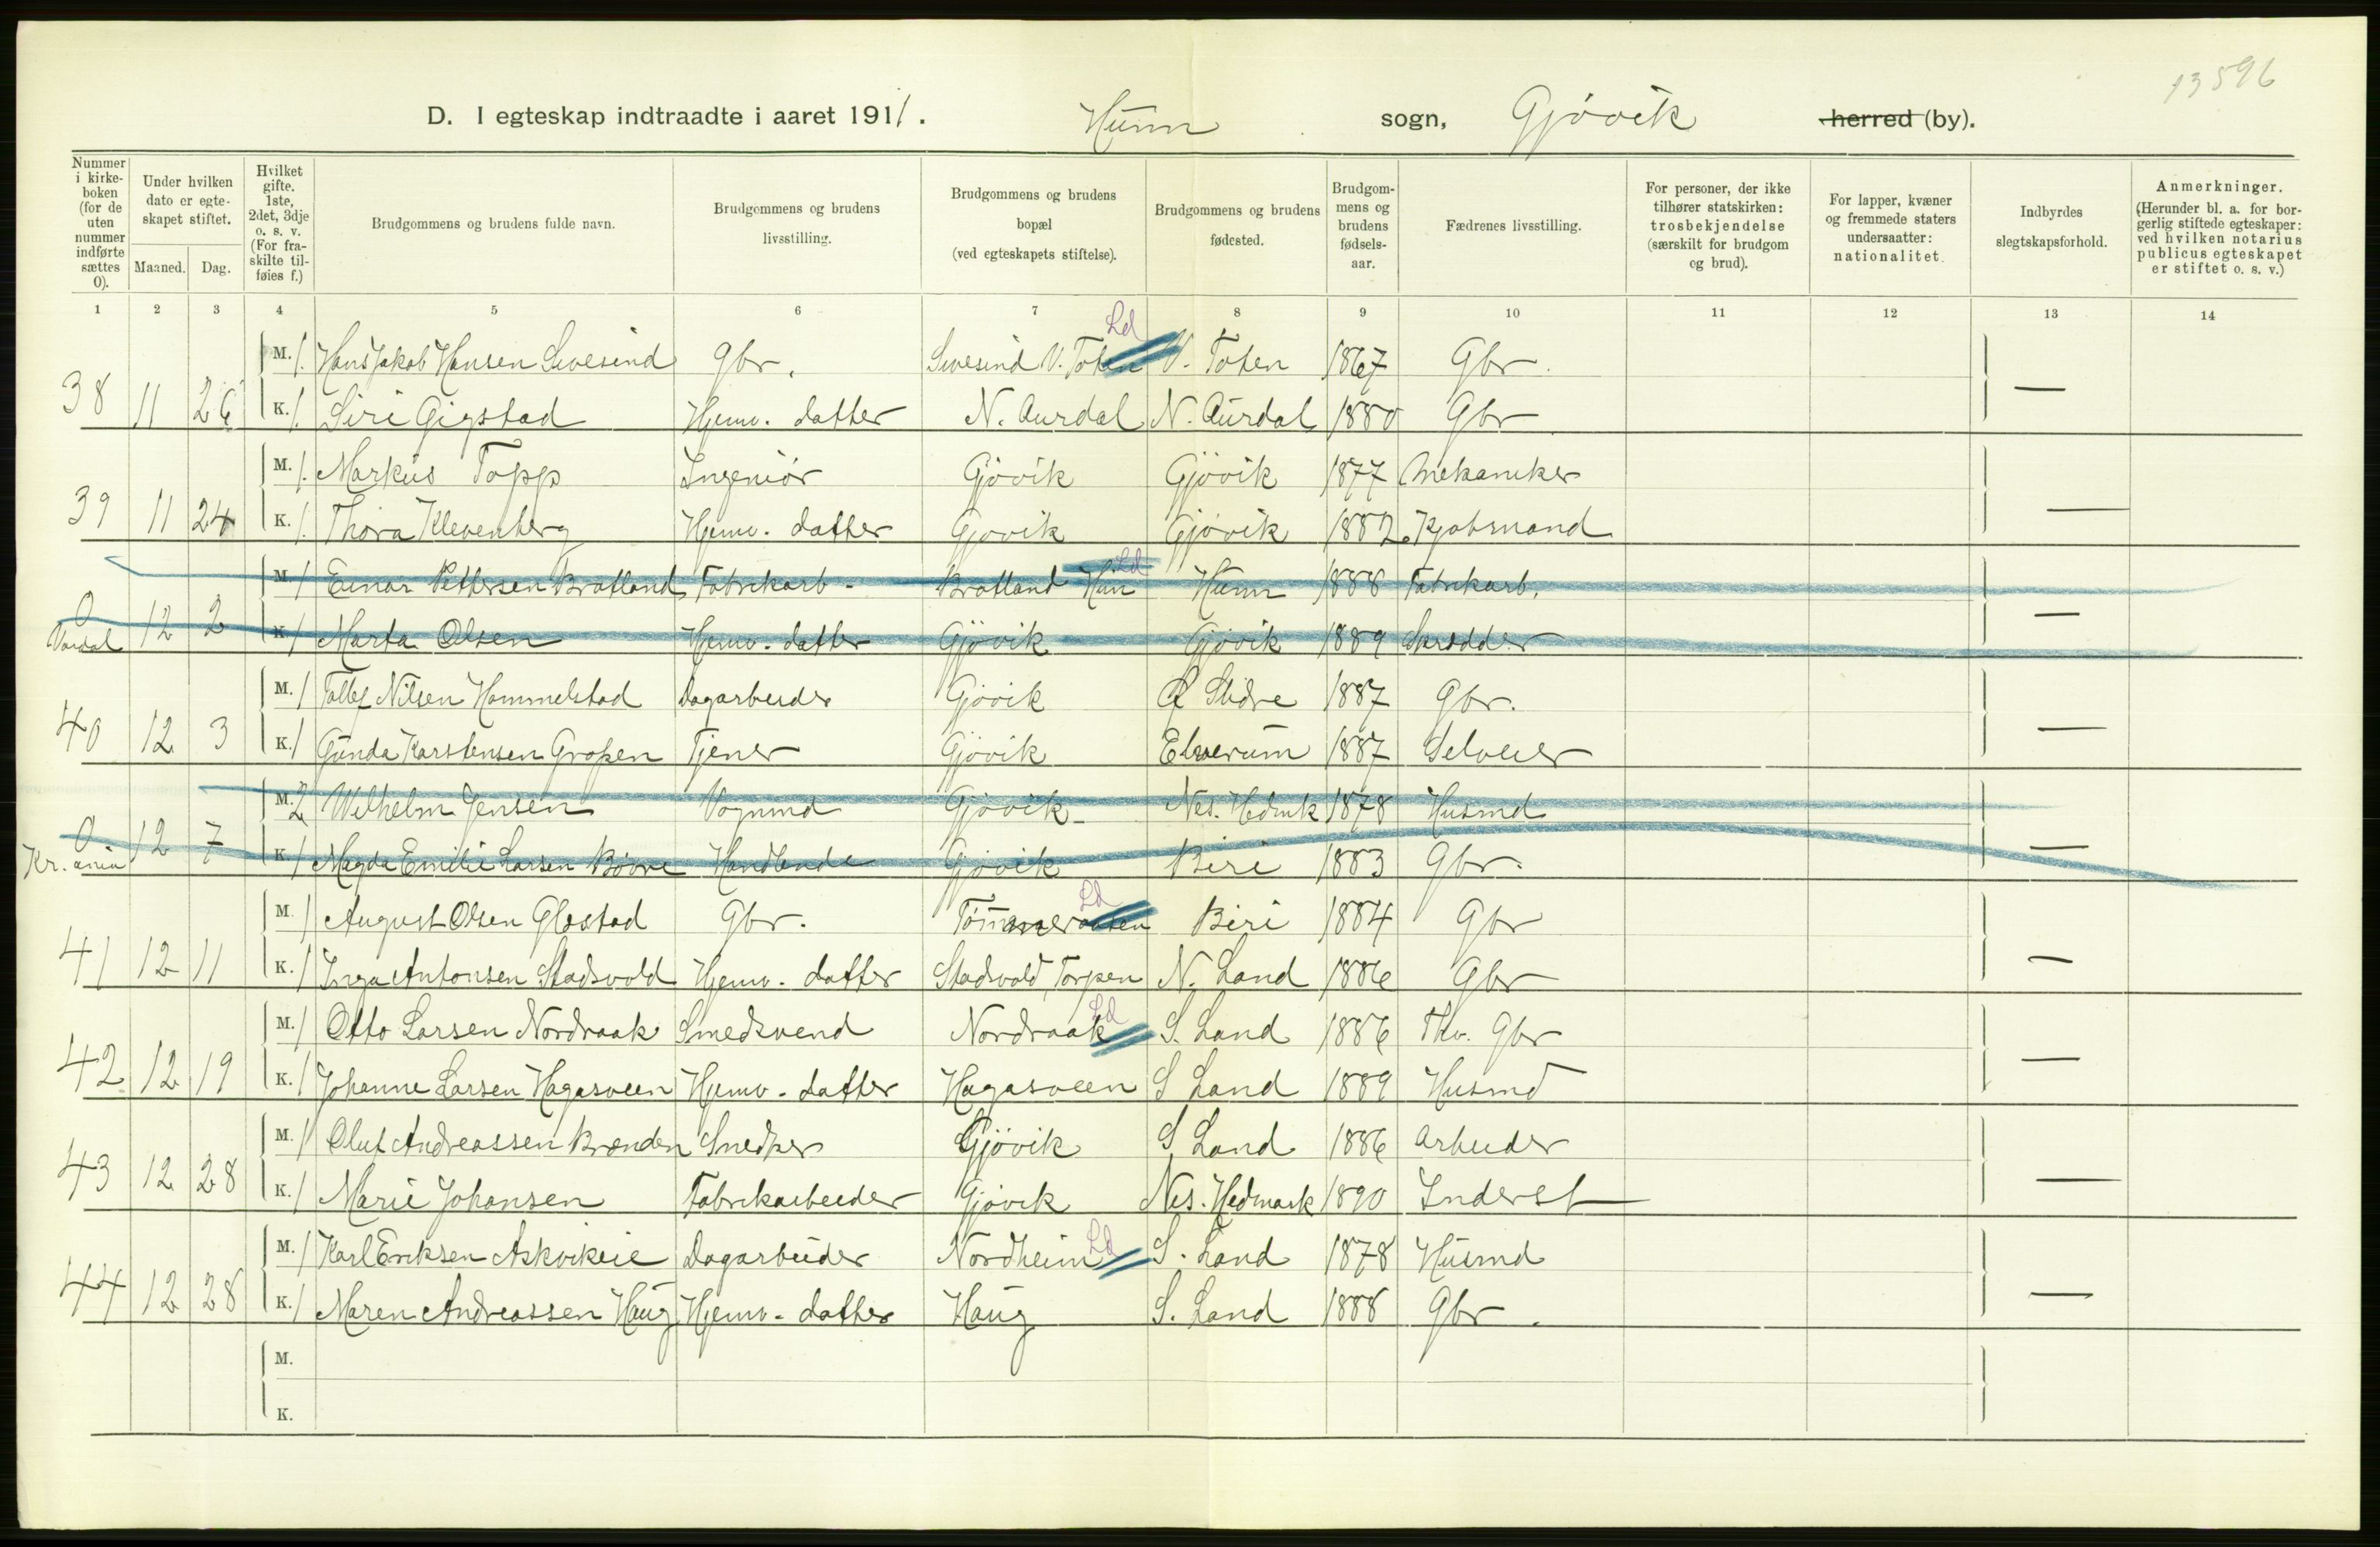 13596
D. I egteskap indtraadte i aaret 1911. Hunn sogn, Gjövik herred (by).
Nummer i kirkeboken (for de uten nummer indførte sættes 0).
Under hvilken dato er egteskapet stiftet.
Maaned. Dag.
Hvilket gifte. 1ste, 2det, 3dje o. s. v. (For fraskilte tilføies f.)
Brudgommens og brudens fulde navn.
Brudgommens og brudens livsstilling.
Brudgommens og brudens bopæl (ved egteskapets stiftelse).
Brudgommens og brudens fødested.
Brudgommens og brudens fødselsaar.
Fædrenes livsstilling.
For personer, der ikke tilhører statskirken: trosbekjendelse (særskilt for brudgom og brud).
For lapper, kvæner og fremmede staters undersaatter: nationalitet.
Indbyrdes slegtskapsforhold.
Anmerkninger. (Herunder bl. a. for borgerlig stiftede egteskaper: ved hvilken notarius publicus egteskapet er stiftet o. s. v.)
1 2 3 4 5 6 7 8 9 10 11 12 13 14
M. 1. Hans Jakob Hansen Sivesind Gbr. Sivesind V. Toten Ld V. Toten 1867 Gbr.
38 11 26 K. 1. Siri Gigstad Hjemv. datter N. Aurdal N. Aurdal 1880 Gbr —
M. 1. Markus Topp Ingeniör Gjövik Gjövik 1877 Mekaniker
39 11 24 K. 1. Thora Klevenberg Hjemv. datter Gjövik Gjövik 1882 Kjøbmand —
M. 1 Einar Pettersen Bratland Fabrikarb. Bratland Hun Ld Hunn 1888 Fabrikarb.
0 Vardal 12 2 K. 1 Marta Olsen Hjemv. datter Gjövik Gjövik 1889 Skrædder —
M. 1 Tollef Nilsen Hammelstad Dagarbeider Gjövik Slidre 1887 Gbr.
40 12 3 K. 1 Gunda Karstensen Gropen Tjener Gjövik Elverum 1887 Selveier —
M. 2 Wilhelm Jensen Vognmd Gjövik Nes. Hedmk 1878 Husmd
0 Kr.ania 12 7 K. 1 Magda Emilie Larsen Bövre Handlende Gjövik Biri 1883 Gbr. —
M. 1 August Olsen Glæstad Gbr. Tömmeraasen Ld Biri 1884 Gbr
41 12 11 K. 1 Inga Antonsen Stadsvold Hjemv. datter Stadsvold, Torpen N. Land 1886 Gbr —
M. 1 Otto Larsen Nordraak Smedsvend Nordraak Ld S. Land 1886 Thv. Gbr
42 12 19 K. 1 Johanne Larsen Hagasveen Hjemv. datter Hagasveen S Land 1889 Husmd —
M. 1 Oluf Andreassen Brænden Snedker Gjövik S. Land 1886 Arbeider
43 12 28 K. 1 Marie Johansen Fabrikarbeider Gjövik Nes. Hedmark 1890 Inderst —
M. 1 Karl Eriksen Askvikeie Dagarbeider Nordheim Ld S. Land 1878 Husmd
44 12 28 K. 1 Maren Andreassen Haug Hjemv. datter Haug S. Land 1888 Gbr. —
M.
K.